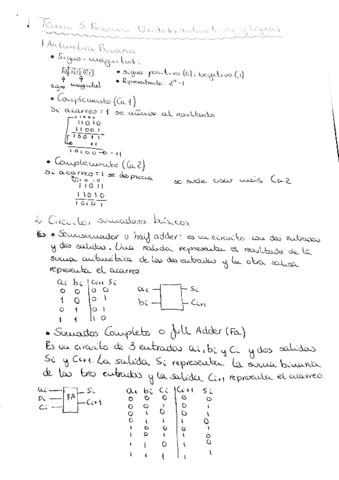 Tema 5. Resumen Unidades aritméticas y lógicas
1. Aritmética Binaria
• Signo-magnitud:
• signo: positivo (0); Negativo (1)
signo magnitud
• Complemento (Ca1)
Si acarreo = 1 se añade al resultado
11010
11001
10011
• Complemento (Ca2)
Si acarreo = 1 se desprecia
se suele usar más Ca2
11011
11010
10101
2. Circuitos sumadores básicos
• Semisumador o half adder: es un circuito con dos entradas
y dos salidas. Una salida representa el resultado de la
suma aritmética de las dos entradas y la otra salida
representa el acarreo
ai bi Ci+1 Si
0 0 0 0
1 0 0 1
0 1 0 1
1 1 1 0
ai Si
bi Ci+1
• Sumador Completo o full Adder (Fa)
Es un circuito de 3 entradas ai, bi y Ci y dos salidas
Si y Ci+1. La salida Si representa la suma binaria
de las tres entradas y la salida Ci+1 representa el acarreo.
ai Si
bi FA Ci+1
Ci
ai bi Ci Ci+1 Si
0 0 0 0 0